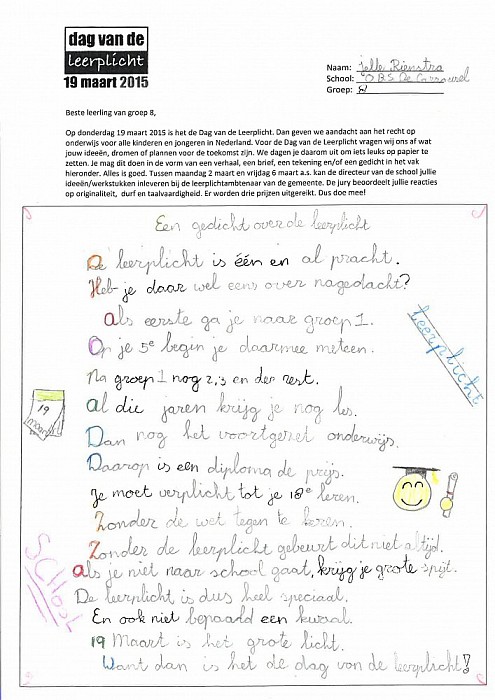 dag van de
leerplicht
19 maart 2015
Naam: Jelle Rienstra
School: O.B.S De Carrousel
Groep: 8
Beste leerling van groep 8,
Op donderdag 19 maart 2015 is het de Dag van de Leerplicht. Dan geven we aandacht aan het recht op
onderwijs voor alle kinderen en jongeren in Nederland. Voor de Dag van de Leerplicht vragen wij ons af wat
jouw ideeën, dromen of plannen voor de toekomst zijn. We dagen je daarom uit om iets leuks op papier te
zetten. Je mag dit doen in de vorm van een verhaal, een brief, een tekening en/of een gedicht in het vak
hieronder. Alles is goed. Tussen maandag 2 maart en vrijdag 6 maart a.s. kan de directeur van de school jullie
ideeën/werkstukken inleveren bij de leerplichtambtenaar van de gemeente. De jury beoordeelt jullie reacties
op originaliteit, durf en taalvaardigheid. Er worden drie prijzen uitgereikt. Dus doe mee!
Een gedicht over de leerplicht
De leerplicht is één en al pracht.
Heb je daar wel eens over nagedacht?
Als eerste ga je naar groep 1.
Op je 5e begin je daarmee meteen.
Na groep 1 nog 2,3 en der rest.
Al die jaren krijg je nog les.
Dan nog het voortgezet onderwijs.
Daarop is een diploma de prijs.
Je moet verplicht tot je 18e leren.
Zonder de wet tegen te keren.
Zonder de leerplicht gebeurt dit niet altijd.
Als je niet naar school gaat, krijg je grote spijt.
De leerplicht is dus heel speciaal.
En ook niet bepaald een kwaal.
19 Maart is het grote licht.
Want dan is het de dag van de leerplicht!
leerplicht
19
maart
SCHOOL